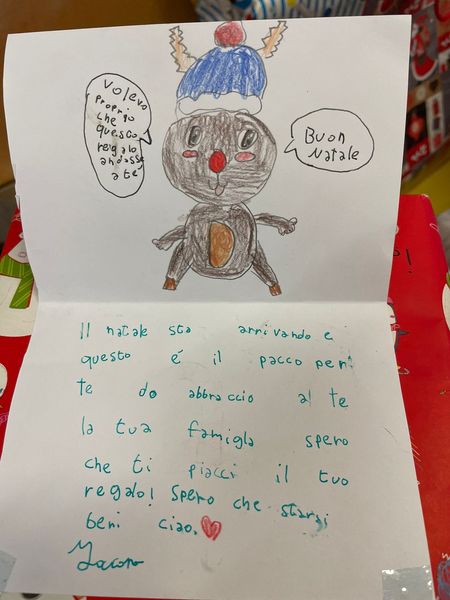 volevo
proprio
che
questo
regalo
andasse
a te
Buon
Natale
Il natale sta arrivando e
questo é il pacco per
te do abbraccio al te
la tua famigla spero
che ti piacci il tuo
regalo! spero che starai
beni ciao.
Jacopo